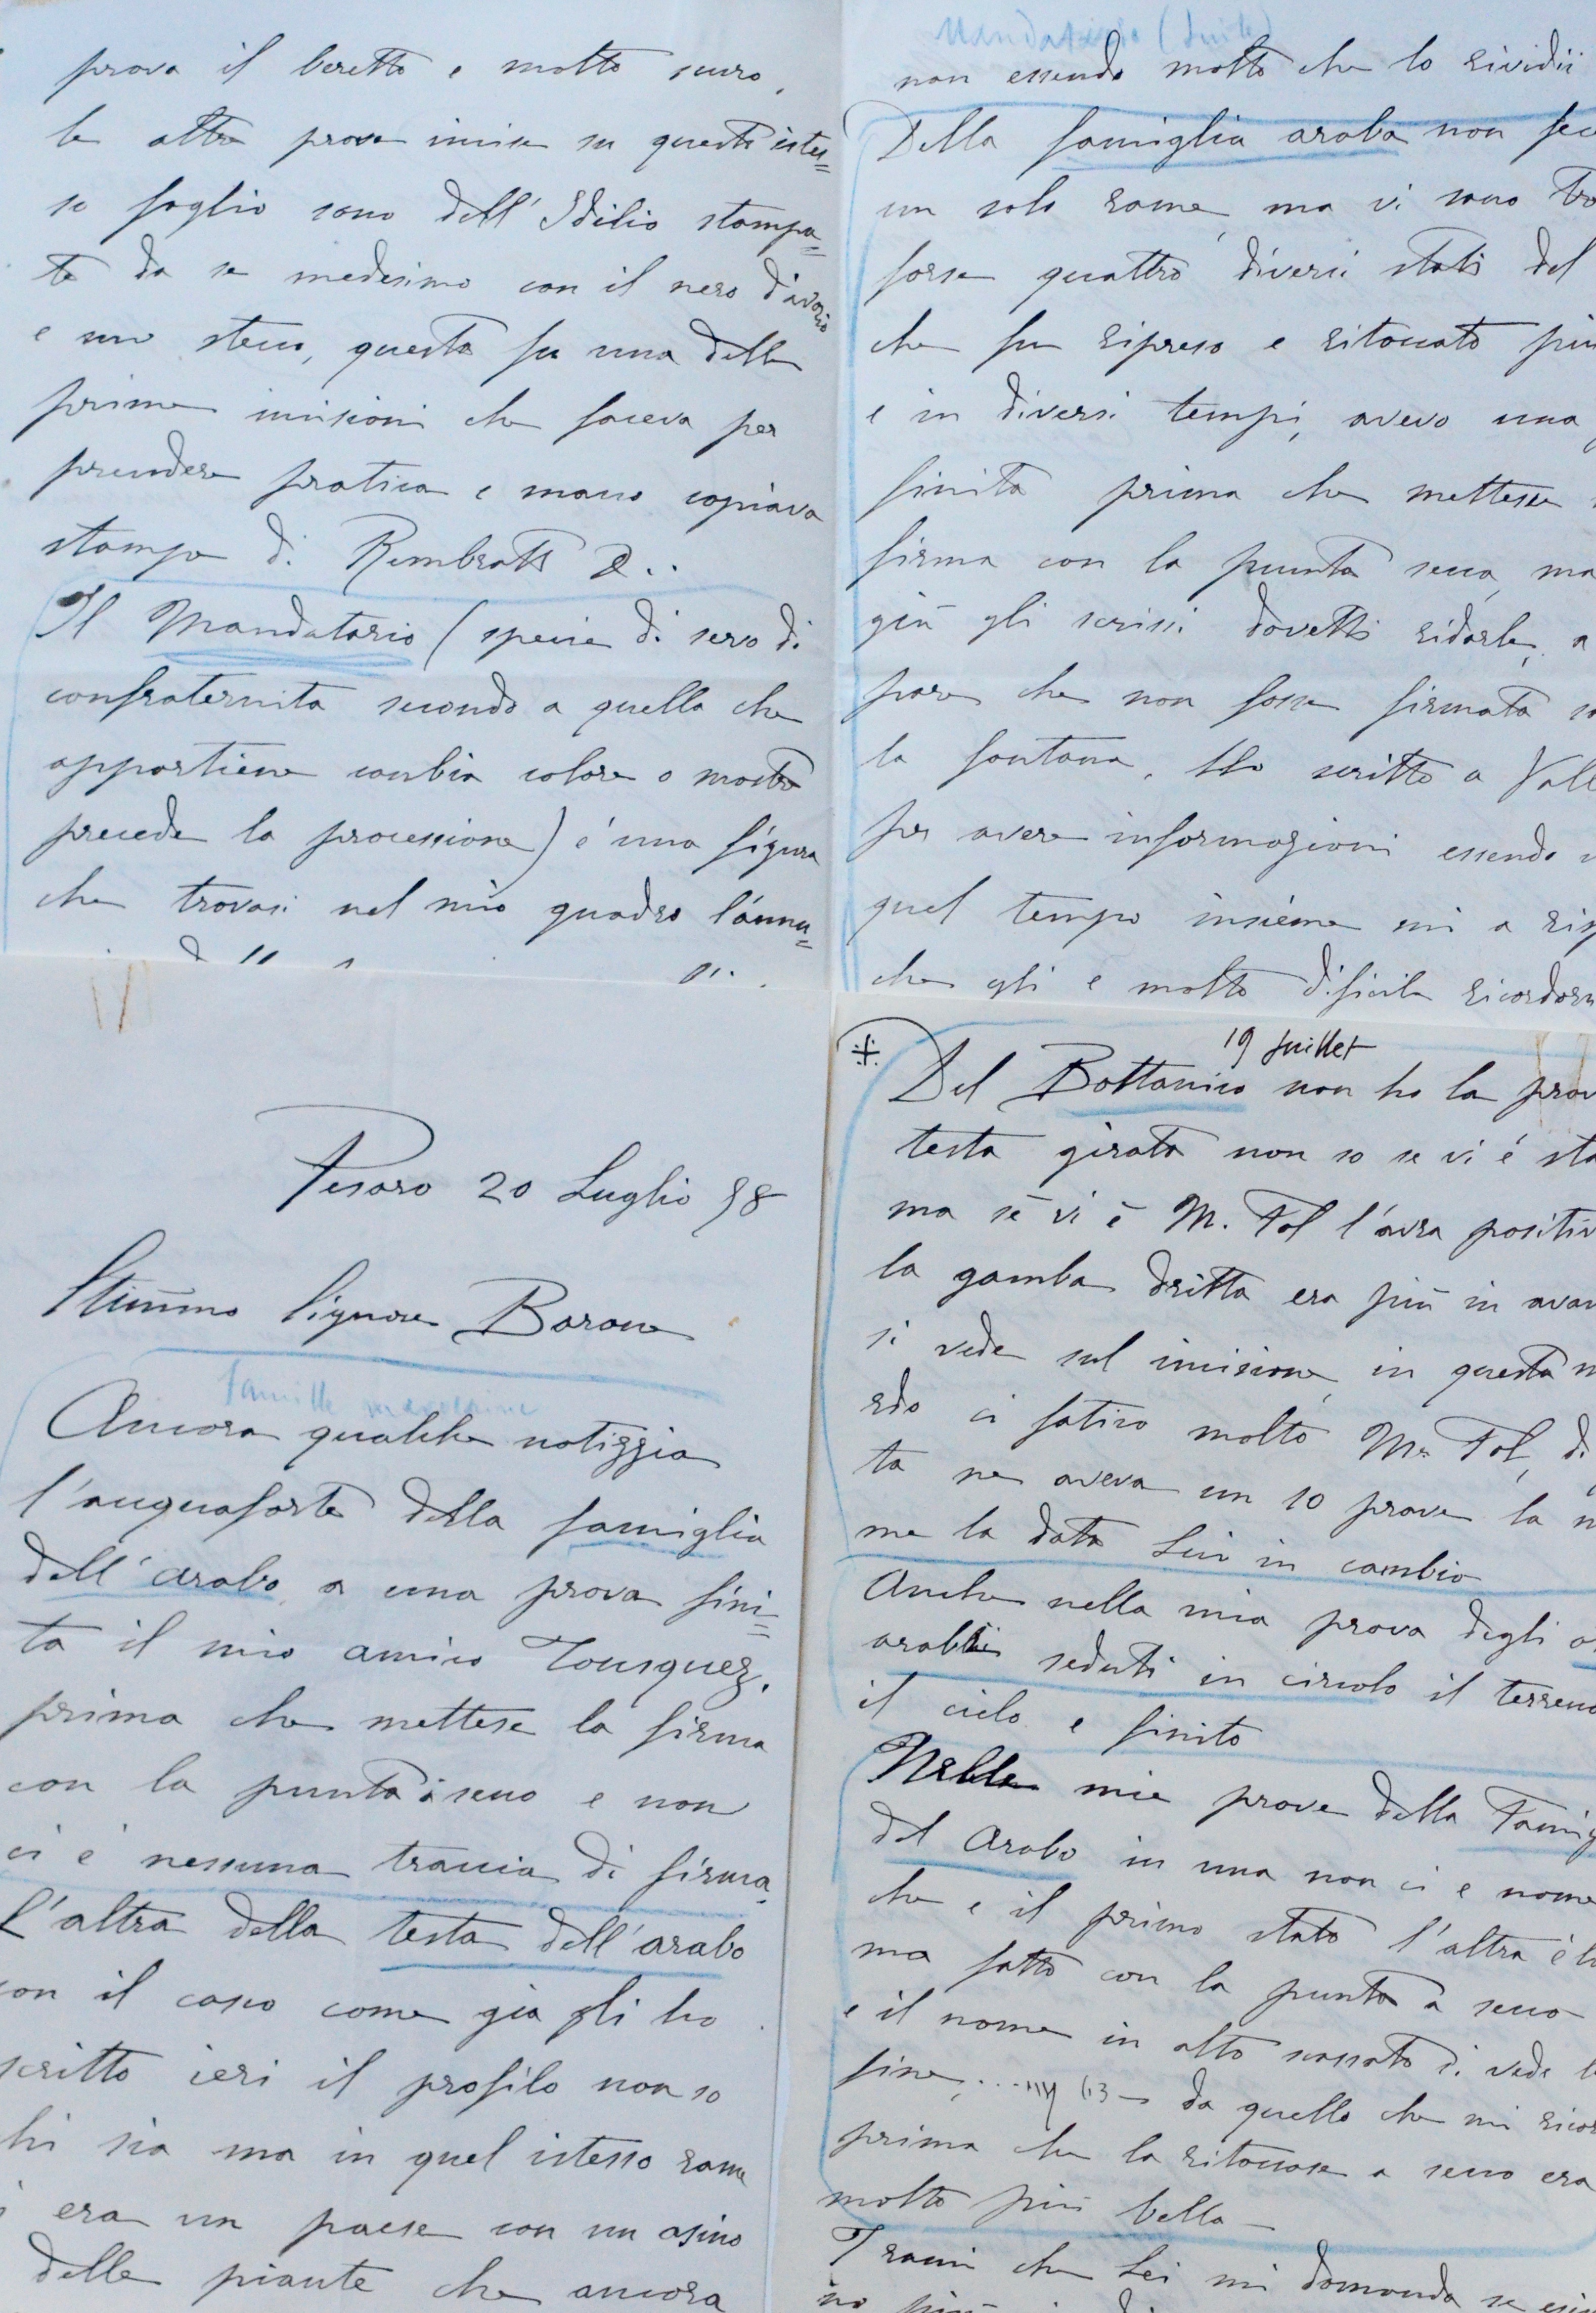 prova il beretto e molto scuro,
le altre prove incise su questo istes=
so foglio sono dell' Idilio stampa=
te da se medesimo con il nero d'avorio
e uno stecco, questa fu una delle
prime incisioni che faceva per
prendere pratica e mano copiava
stampe di Rembratt
Il Mandatario (specie di servo di
confraternita secondo a quella che
appartiene cambia colore o mostra
precede la processione) é una figura
che trovasi nel mio quadro l'annu=
Pesaro 20 Luglio 98
Stimmo Signore Barone
Famille marocaine
Ancora qualche notizzia
l'acquaforte della famiglia
dell' arabo a una prova fini=
ta il mio amico Tousquez.
prima che mettese la firma
con la punta a seco e non
ci é nessuna traccia di firma.
L'altra della testa dell'arabo
con il casco come gia gli ho
scritto ieri il profilo non so
hi sia ma in quel istesso rame
era un paese con un asino
delle piante che ancora
Mandatario (suite)
non essendo molto che lo rividi
Della famiglia araba non fec
un solo rame, ma vi sono tro
forse quattro diversi stati del
che fu ripreso e ritoccato piu
e in diversi tempi, avevo una
finita prima che mettesse
firma con la punta secca, ma
giu gli scrissi dovetti ridarle, a
pare che non fosse firmata so
la fontana. Ho scritto a Vall
per avere informazioni essendo
quel tempo insieme mi a risp
che gli e molto dificile ricordars
19 Juillet
Del Bottanico non ho la prov
testa girata non so se vi é sta
ma se vi é M. Fol l'avra positiv
la gamba dritta era piu in avan
si vede sul incisione, in questa
rdo ci fatico molto Mr. Fol, di
ta ne aveva un 10 prove la
me la data Lui in cambio
Anche nella mia prova degli
arabi seduti in circolo il terreno
il cielo e finito
Nelle mie prove della Famig
del Arabo in una non ci e nome
che e il primo stato l'altra é
ma fatto con la punta a seco
e il nome in alto scassato si vede
fine, da quello che mi ricor
prima che la ritoccase a seco era
molto piu bella
I rami che Lei mi domanda se